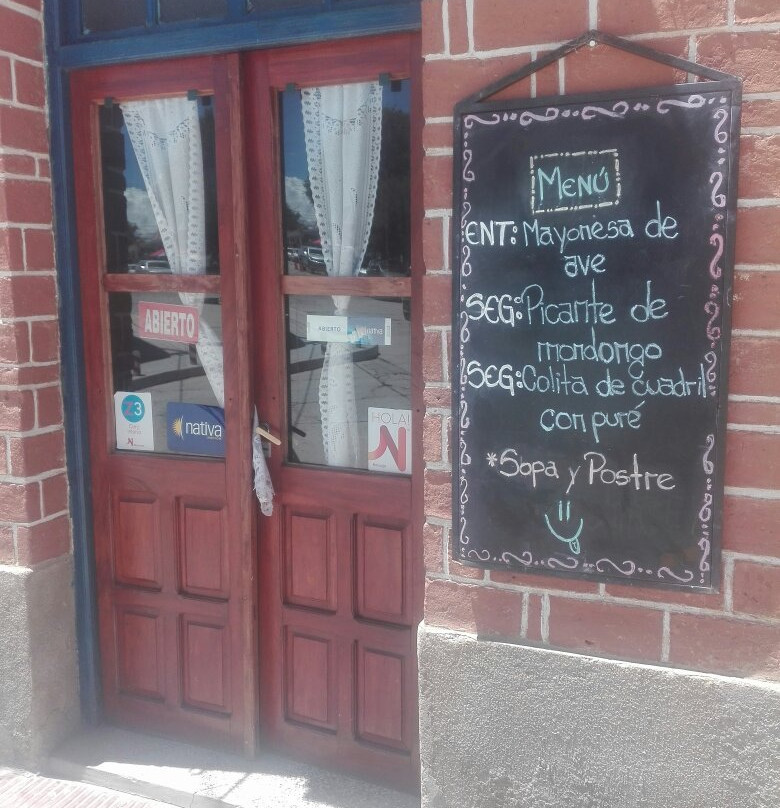 Menú
ENT: Mayonesa de
ave
SEG: Picante de
mondongo
SEG: Colita de cuadril
con puré
*Sopa y Postre
ABIERTO
ABIERTO nativa
Z3
nativa
HOLA!
N